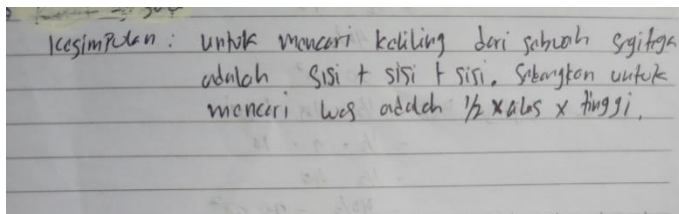 Kesimpulan : untuk mencari keliling dari sebuah segitiga
adalah sisi + sisi + sisi. Sedangkan untuk
mencari luas adalah 1/2 x alas x tinggi.